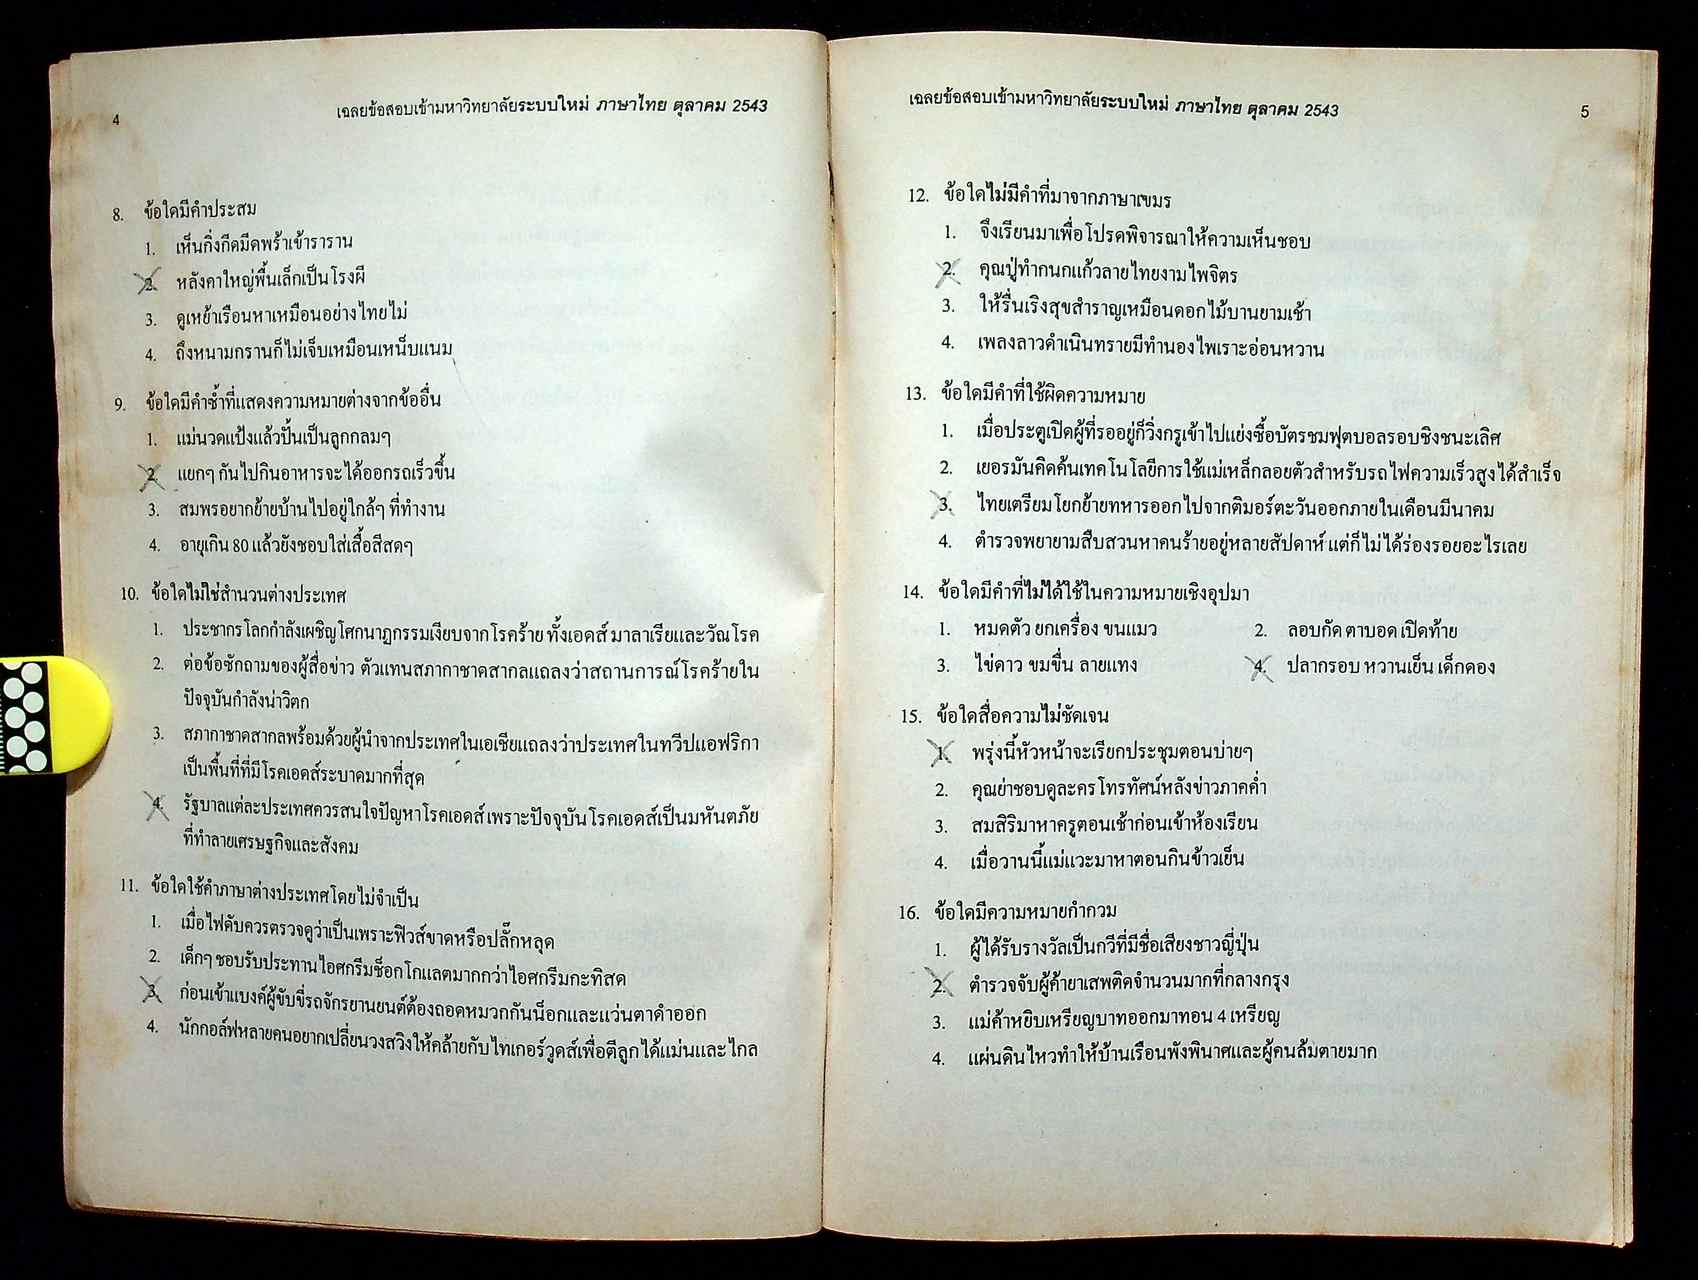 4
เฉลยข้อสอบเข้ามหาวิทยาลัยระบบใหม่ ภาษาไทย ตุลาคม 2543
8. ข้อใดมีคำประสม
1. เห็นกิ่งกีดมีดพร้าเข้าราราน
2. หลังคาใหญ่พื้นเล็กเป็นโรงผี
3. ดูเหย้าเรือนหาเหมือนอย่างไทยไม่
4. ถึงหนามกรานก็ไม่เจ็บเหมือนเหน็บแนม
9. ข้อใดมีคำซ้ำที่แสดงความหมายต่างจากข้ออื่น
1. แม่นวดแป้งแล้วปั้นเป็นลูกกลมๆ
2. แยกๆ กันไปกินอาหารจะได้ออกรถเร็วขึ้น
3. สมพรอยากย้ายบ้านไปอยู่ใกล้ๆ ที่ทำงาน
4. อายุเกิน 80 แล้วยังชอบใส่เสื้อสีสดๆ
10. ข้อใดไม่ใช่สำนวนต่างประเทศ
1. ประชากรโลกกำลังเผชิญโศกนาฏกรรมเงียบจากโรคร้าย ทั้งเอดส์ มาลาเรียและวัณโรค
2. ต่อข้อซักถามของผู้สื่อข่าว ตัวแทนสภากาชาดสากลแถลงว่าสถานการณ์โรคร้ายใน
ปัจจุบันกำลังน่าวิตก
3. สภากาชาดสากลพร้อมด้วยผู้นำจากประเทศในเอเชียแถลงว่าประเทศในทวีปแอฟริกา
เป็นพื้นที่ที่มีโรคเอดส์ระบาดมากที่สุด
4. รัฐบาลแต่ละประเทศควรสนใจปัญหาโรคเอดส์เพราะปัจจุบันโรคเอดส์เป็นมหันตภัย
ที่ทำลายเศรษฐกิจและสังคม
11. ข้อใดใช้คำภาษาต่างประเทศโดยไม่จำเป็น
1. เมื่อไฟดับควรตรวจดูว่าเป็นเพราะฟิวส์ขาดหรือปลั๊กหลุด
2. เด็กๆ ชอบรับประทานไอศกรีมช็อกโกแลตมากกว่าไอศกรีมกะทิสด
3. ก่อนเข้าแบงค์ผู้ขับขี่รถจักรยานยนต์ต้องถอดหมวกกันน็อกและแว่นตาดำออก
4. นักกอล์ฟหลายคนอยากเปลี่ยนวงสวิงให้คล้ายกับไทเกอร์วูดส์เพื่อตีลูกได้แม่นและไกล
เฉลยข้อสอบเข้ามหาวิทยาลัยระบบใหม่ ภาษาไทย ตุลาคม 2543
5
12. ข้อใดไม่มีคำที่มาจากภาษาเขมร
1. จึงเรียนมาเพื่อโปรดพิจารณาให้ความเห็นชอบ
2. คุณปู่ทำกนกแก้วลายไทยงามไพจิตร
3. ให้รื่นเริงสุขสำราญเหมือนดอกไม้บานยามเช้า
4. เพลงลาวดำเนินทรายมีทำนองไพเราะอ่อนหวาน
13. ข้อใดมีคำที่ใช้ผิดความหมาย
1. เมื่อประตูเปิดผู้ที่รออยู่ก็วิ่งกรูเข้าไปแย่งซื้อบัตรชมฟุตบอลรอบชิงชนะเลิศ
2. เยอรมันคิดค้นเทคโนโลยีการใช้แม่เหล็กลอยตัวสำหรับรถไฟความเร็วสูงได้สำเร็จ
3. ไทยเตรียมโยกย้ายทหารออกไปจากติมอร์ตะวันออกภายในเดือนมีนาคม
4. ตำรวจพยายามสืบสวนหาคนร้ายอยู่หลายสัปดาห์ แต่ก็ไม่ได้ร่องรอยอะไรเลย
14. ข้อใดมีคำที่ไม่ได้ใช้ในความหมายเชิงอุปมา
1. หมดตัว ยกเครื่อง ขนแมว 2. ลอบกัด ตาบอด เปิดท้าย
3. ไข่ดาว ขมขื่น ลายแทง 4. ปลากรอบ หวานเย็น เด็กดอง
15. ข้อใดสื่อความไม่ชัดเจน
1. พรุ่งนี้หัวหน้าจะเรียกประชุมตอนบ่ายๆ
2. คุณย่าชอบดูละครโทรทัศน์หลังข่าวภาคค่ำ
3. สมสิริมาหาครูตอนเช้าก่อนเข้าห้องเรียน
4. เมื่อวานนี้แม่แวะมาหาตอนกินข้าวเย็น
16. ข้อใดมีความหมายกำกวม
1. ผู้ได้รับรางวัลเป็นกวีที่มีชื่อเสียงชาวญี่ปุ่น
2. ตำรวจจับผู้ค้ายาเสพติดจำนวนมากที่กลางกรุง
3. แม่ค้าหยิบเหรียญบาทออกมาทอน 4 เหรียญ
4. แผ่นดินไหวทำให้บ้านเรือนพังพินาศและผู้คนล้มตายมาก